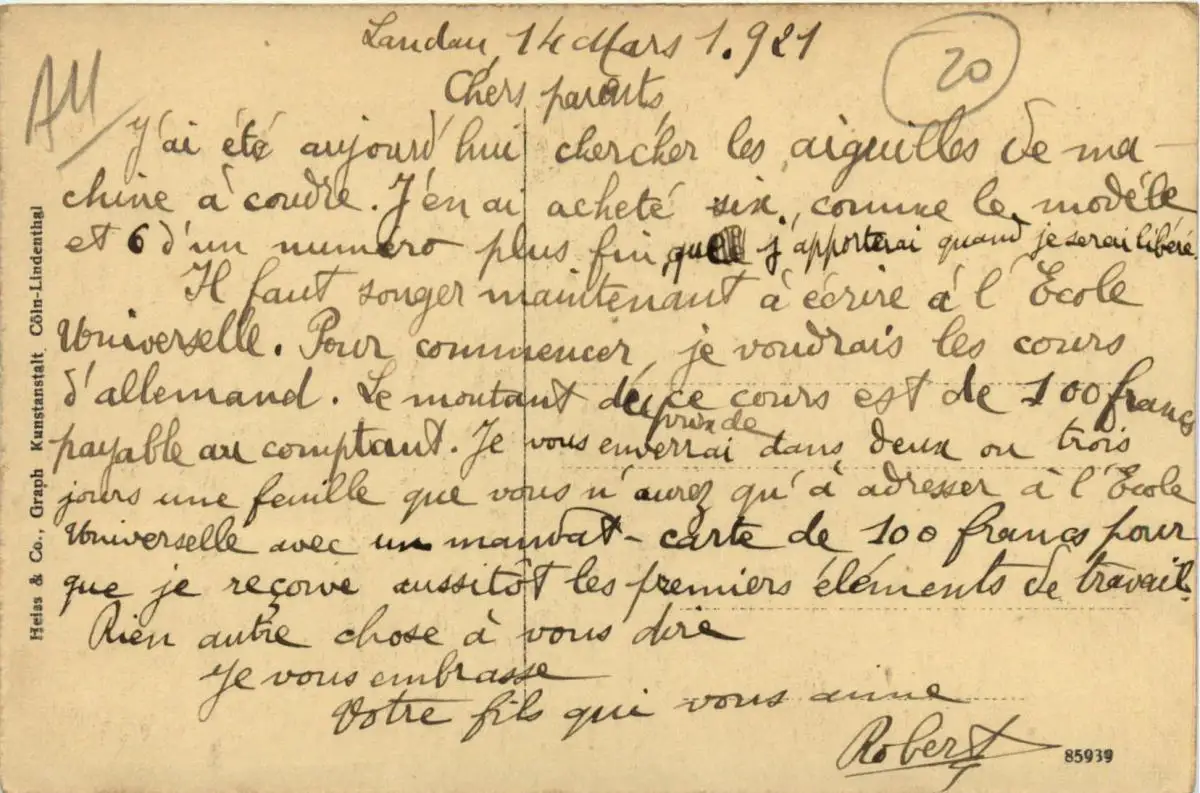 Landau, 14 Mars 1.921
20
AM
Chers parents,
J'ai été aujourd'hui chercher les aiguilles de ma-
chine à coudre. J'en ai acheté six, comme le modèle
et 6 d'un numéro plus fin que j'apporterai quand je serai libéré.
Il faut songer maintenant à écrire à l'École
Universelle. Pour commencer, je voudrais les cours
d'allemand. Le montant du prix de ce cours est de 100 francs
payable au comptant. Je vous enverrai dans deux ou trois
jours une feuille que vous n'aurez qu'à adresser à l'École
Universelle avec un mandat-carte de 100 francs pour
que je reçoive aussitôt les premiers éléments de travail.
Rien autre chose à vous dire
Je vous embrasse
Votre fils qui vous aime
Robert
85939
Heiss & Co., Graph Kunstanstalt, Cöln-Lindenthal